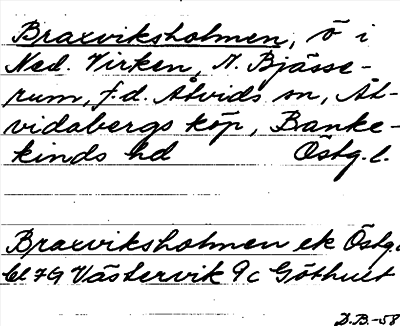 Braxviksholmen, ö i
Ned. Virken, N. Bjässe-
rum, f.d. Åtvids sn, Åt-
vidabergs köp, Banke-
kinds hd Östg. l.
Braxviksholmen ek Östg.
bl 79 Västervik 9c Göthult
D.B.-58